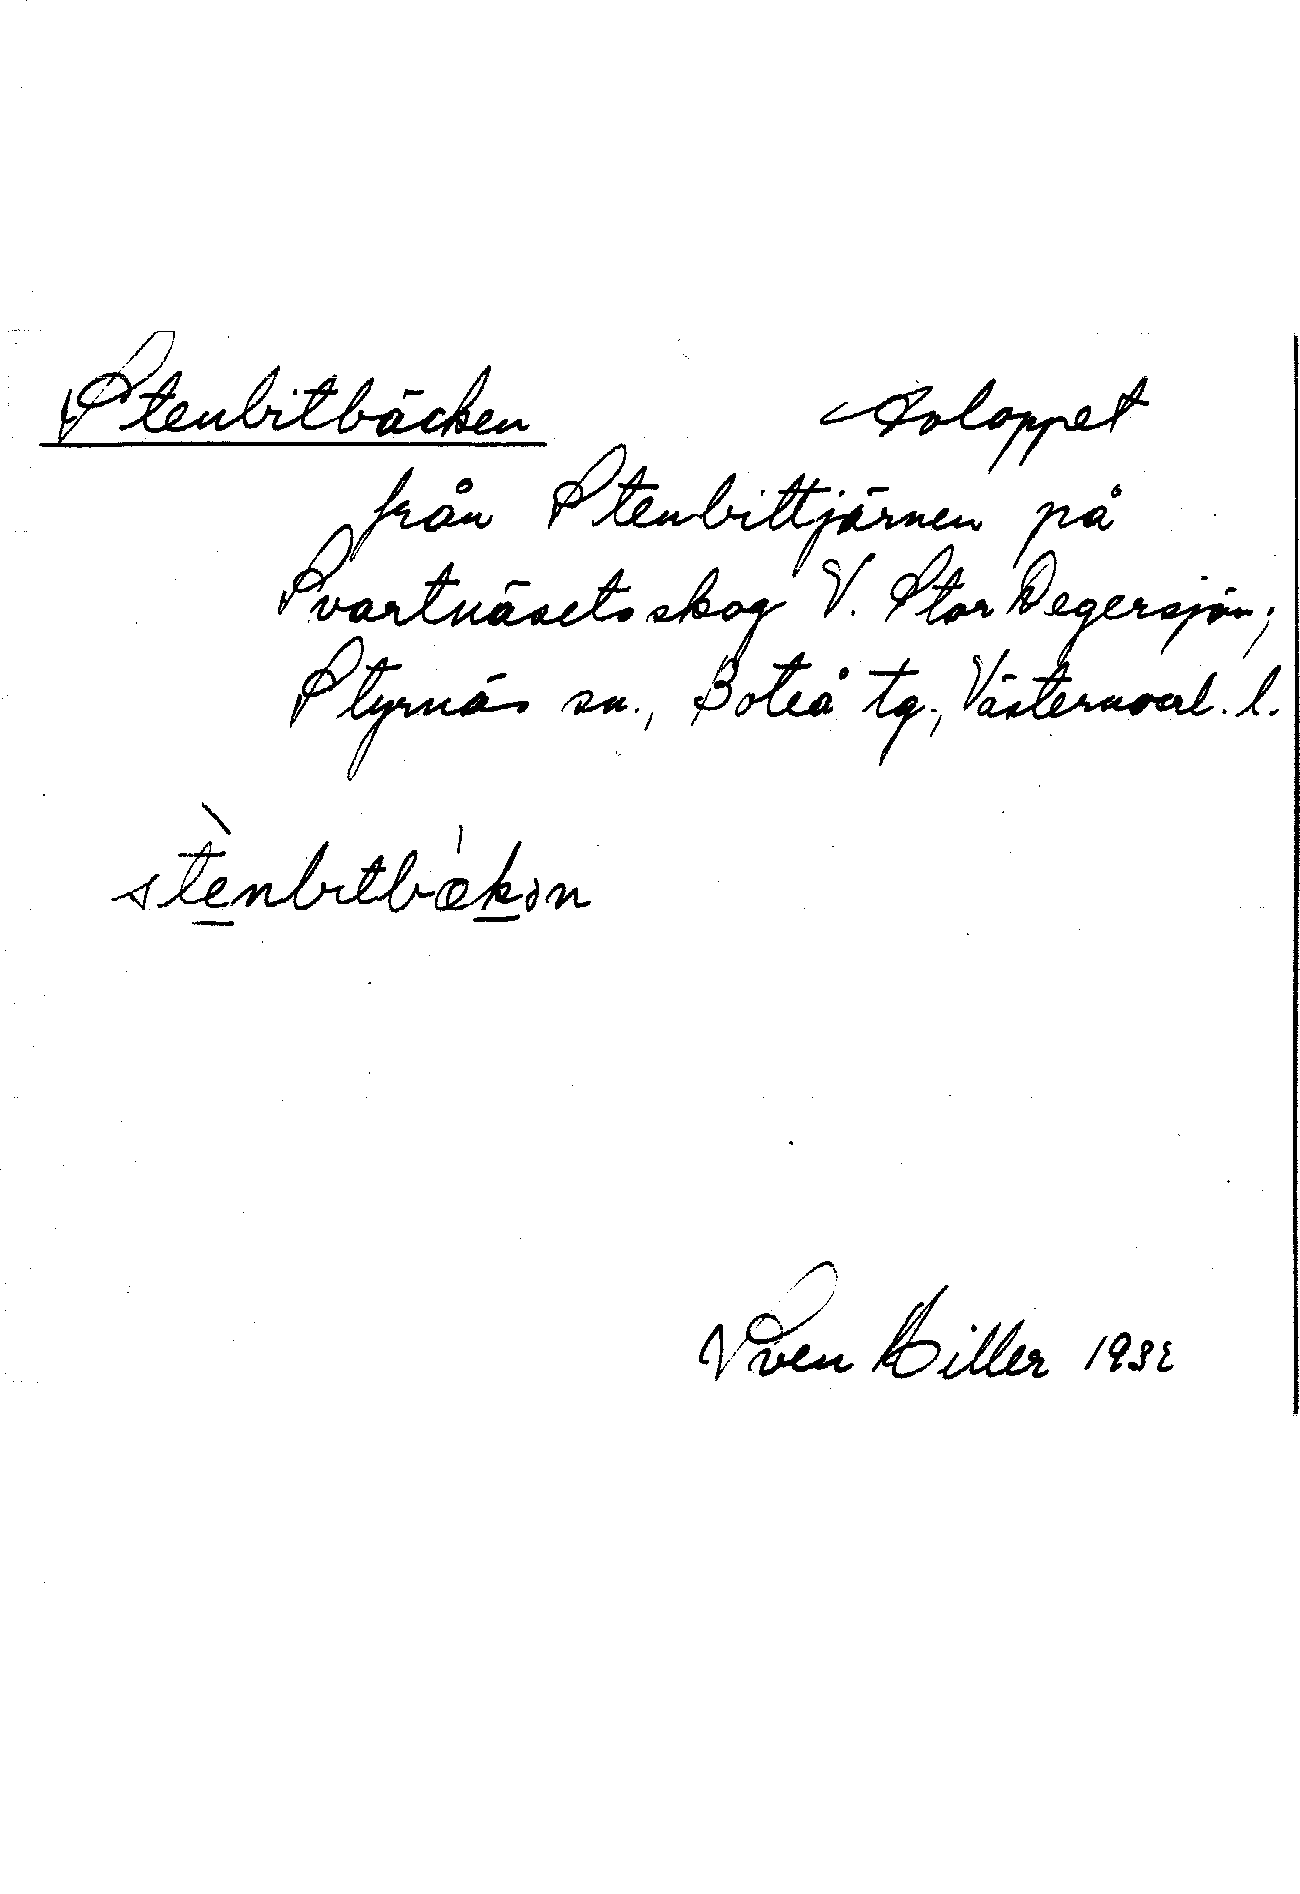 Stenbitbäcken avloppet
från Stenbittjärnen på
Svartnäsets skog V. Stor Degersjön;
Styrnäs sn., Boteå tg., Västernorrl. l.
stènbitbækən
Sven Hiller 1932